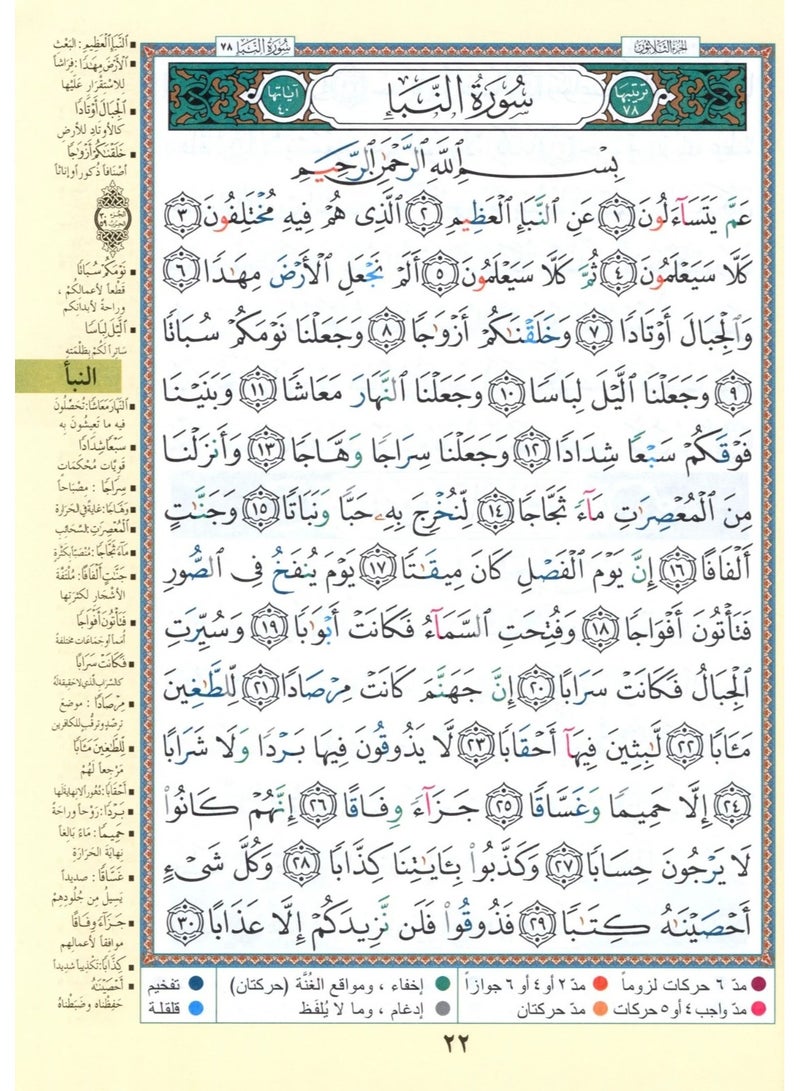 الجزء الثلاثون
سُورَةُ النَّبَإِ ٧٨
ترتيبها ٧٨
سُورَةُ النَّبَإِ
آياتها ٤٠
بِسْمِ ٱللَّهِ ٱلرَّحْمَٰنِ ٱلرَّحِيمِ
عَمَّ يَتَسَآءَلُونَ ١ عَنِ ٱلنَّبَإِ ٱلْعَظِيمِ ٢ ٱلَّذِى هُمْ فِيهِ مُخْتَلِفُونَ ٣
كَلَّا سَيَعْلَمُونَ ٤ ثُمَّ كَلَّا سَيَعْلَمُونَ ٥ أَلَمْ نَجْعَلِ ٱلْأَرْضَ مِهَٰدًا ٦
وَٱلْجِبَالَ أَوْتَادًا ٧ وَخَلَقْنَٰكُمْ أَزْوَٰجًا ٨ وَجَعَلْنَا نَوْمَكُمْ سُبَاتًا
٩ وَجَعَلْنَا ٱلَّيْلَ لِبَاسًا ١٠ وَجَعَلْنَا ٱلنَّهَارَ مَعَاشًا ١١ وَبَنَيْنَا
فَوْقَكُمْ سَبْعًا شِدَادًا ١٢ وَجَعَلْنَا سِرَاجًا وَهَّاجًا ١٣ وَأَنزَلْنَا
مِنَ ٱلْمُعْصِرَٰتِ مَآءً ثَجَّاجًا ١٤ لِّنُخْرِجَ بِهِۦ حَبًّا وَنَبَاتًا ١٥ وَجَنَّٰتٍ
أَلْفَافًا ١٦ إِنَّ يَوْمَ ٱلْفَصْلِ كَانَ مِيقَٰتًا ١٧ يَوْمَ يُنفَخُ فِى ٱلصُّورِ
فَتَأْتُونَ أَفْوَاجًا ١٨ وَفُتِحَتِ ٱلسَّمَآءُ فَكَانَتْ أَبْوَٰبًا ١٩ وَسُيِّرَتِ
ٱلْجِبَالُ فَكَانَتْ سَرَابًا ٢٠ إِنَّ جَهَنَّمَ كَانَتْ مِرْصَادًا ٢١ لِّلطَّٰغِينَ
مَـَٔابًا ٢٢ لَّٰبِثِينَ فِيهَآ أَحْقَابًا ٢٣ لَّا يَذُوقُونَ فِيهَا بَرْدًا وَلَا شَرَابًا
٢٤ إِلَّا حَمِيمًا وَغَسَّاقًا ٢٥ جَزَآءً وِفَاقًا ٢٦ إِنَّهُمْ كَانُوا۟
لَا يَرْجُونَ حِسَابًا ٢٧ وَكَذَّبُوا۟ بِـَٔايَٰتِنَا كِذَّابًا ٢٨ وَكُلَّ شَىْءٍ
أَحْصَيْنَٰهُ كِتَٰبًا ٢٩ فَذُوقُوا۟ فَلَن نَّزِيدَكُمْ إِلَّا عَذَابًا ٣٠
النَّبَإِ الْعَظِيمِ: البَعْث
الْأَرْضَ مِهَٰدًا: فِرَاشًا
للاسْتِقْرَارِ عَلَيْها
الْجِبَالَ أَوْتَادًا
كالأوتادِ للأرضِ
خَلَقْنَٰكُمْ أَزْوَٰجًا
أصْنافاً ذُكوراً وإناثاً
الجزء ٣٠
الحزب ٥٩
نَوْمَكُمْ سُبَاتًا
قَطْعاً لأعمالِكُمْ ،
وراحةً لأبدانِكم
الَّيْلَ لِبَاسًا
سَاتِراً لَكُمْ بِظُلْمَتِهِ
النبأ
النَّهَارَ مَعَاشًا: تُحَصِّلُونَ
فيه ما تَعِيشُونَ بِهِ
سَبْعًا شِدَادًا
قَوِيّاتٍ مُحْكَمَاتٍ
سِرَاجًا : مِصْبَاحاً
وَهَّاجًا: غايةً في الحَرَارَةِ
الْمُعْصِرَٰتِ: السَّحَائِبِ
مَآءً ثَجَّاجًا: مُنْصَبّاً بكَثْرَةٍ
جَنَّٰتٍ أَلْفَافًا: مُلْتَفَّةَ
الأشْجَارِ لكثرَتِها
فَتَأْتُونَ أَفْوَاجًا
أُمَماً أو جَماعَاتٍ مختلفةً
فَكَانَتْ سَرَابًا
كالسَّرَابِ الَّذي لا حَقِيقَةَ لَهُ
مِرْصَادًا : موضعَ
ترصُّدٍ وترقُّبٍ للكافرين
لِّلطَّٰغِينَ مَـَٔابًا
مَرْجِعاً لَهُمْ
أَحْقَابًا: دُهُوراً لا نِهايَةَ لها
بَرْدًا: رَوْحاً وراحةً
حَمِيمًا: مَاءً بالغاً
نهايَةَ الحَرَارَةِ
غَسَّاقًا : صديداً
يَسِيلُ مِنْ جُلُودِهِمْ
جَزَآءً وِفَاقًا
موافِقاً لأعمالِهم
كِذَّابًا: تكْذِيباً شَدِيداً
أَحْصَيْنَٰهُ
حَفِظْناهُ وضَبَطْناهُ
مدّ ٦ حركات لزوماً
مدّ ٢ أو ٤ أو ٦ جوازاً
إخفاء ، ومواقع الغُنَّة (حركتان)
تفخيم
مدّ واجب ٤ أو ٥ حركات
مدّ حركتان
إدغام ، وما لا يُلفَظ
قلقلة
٢٢